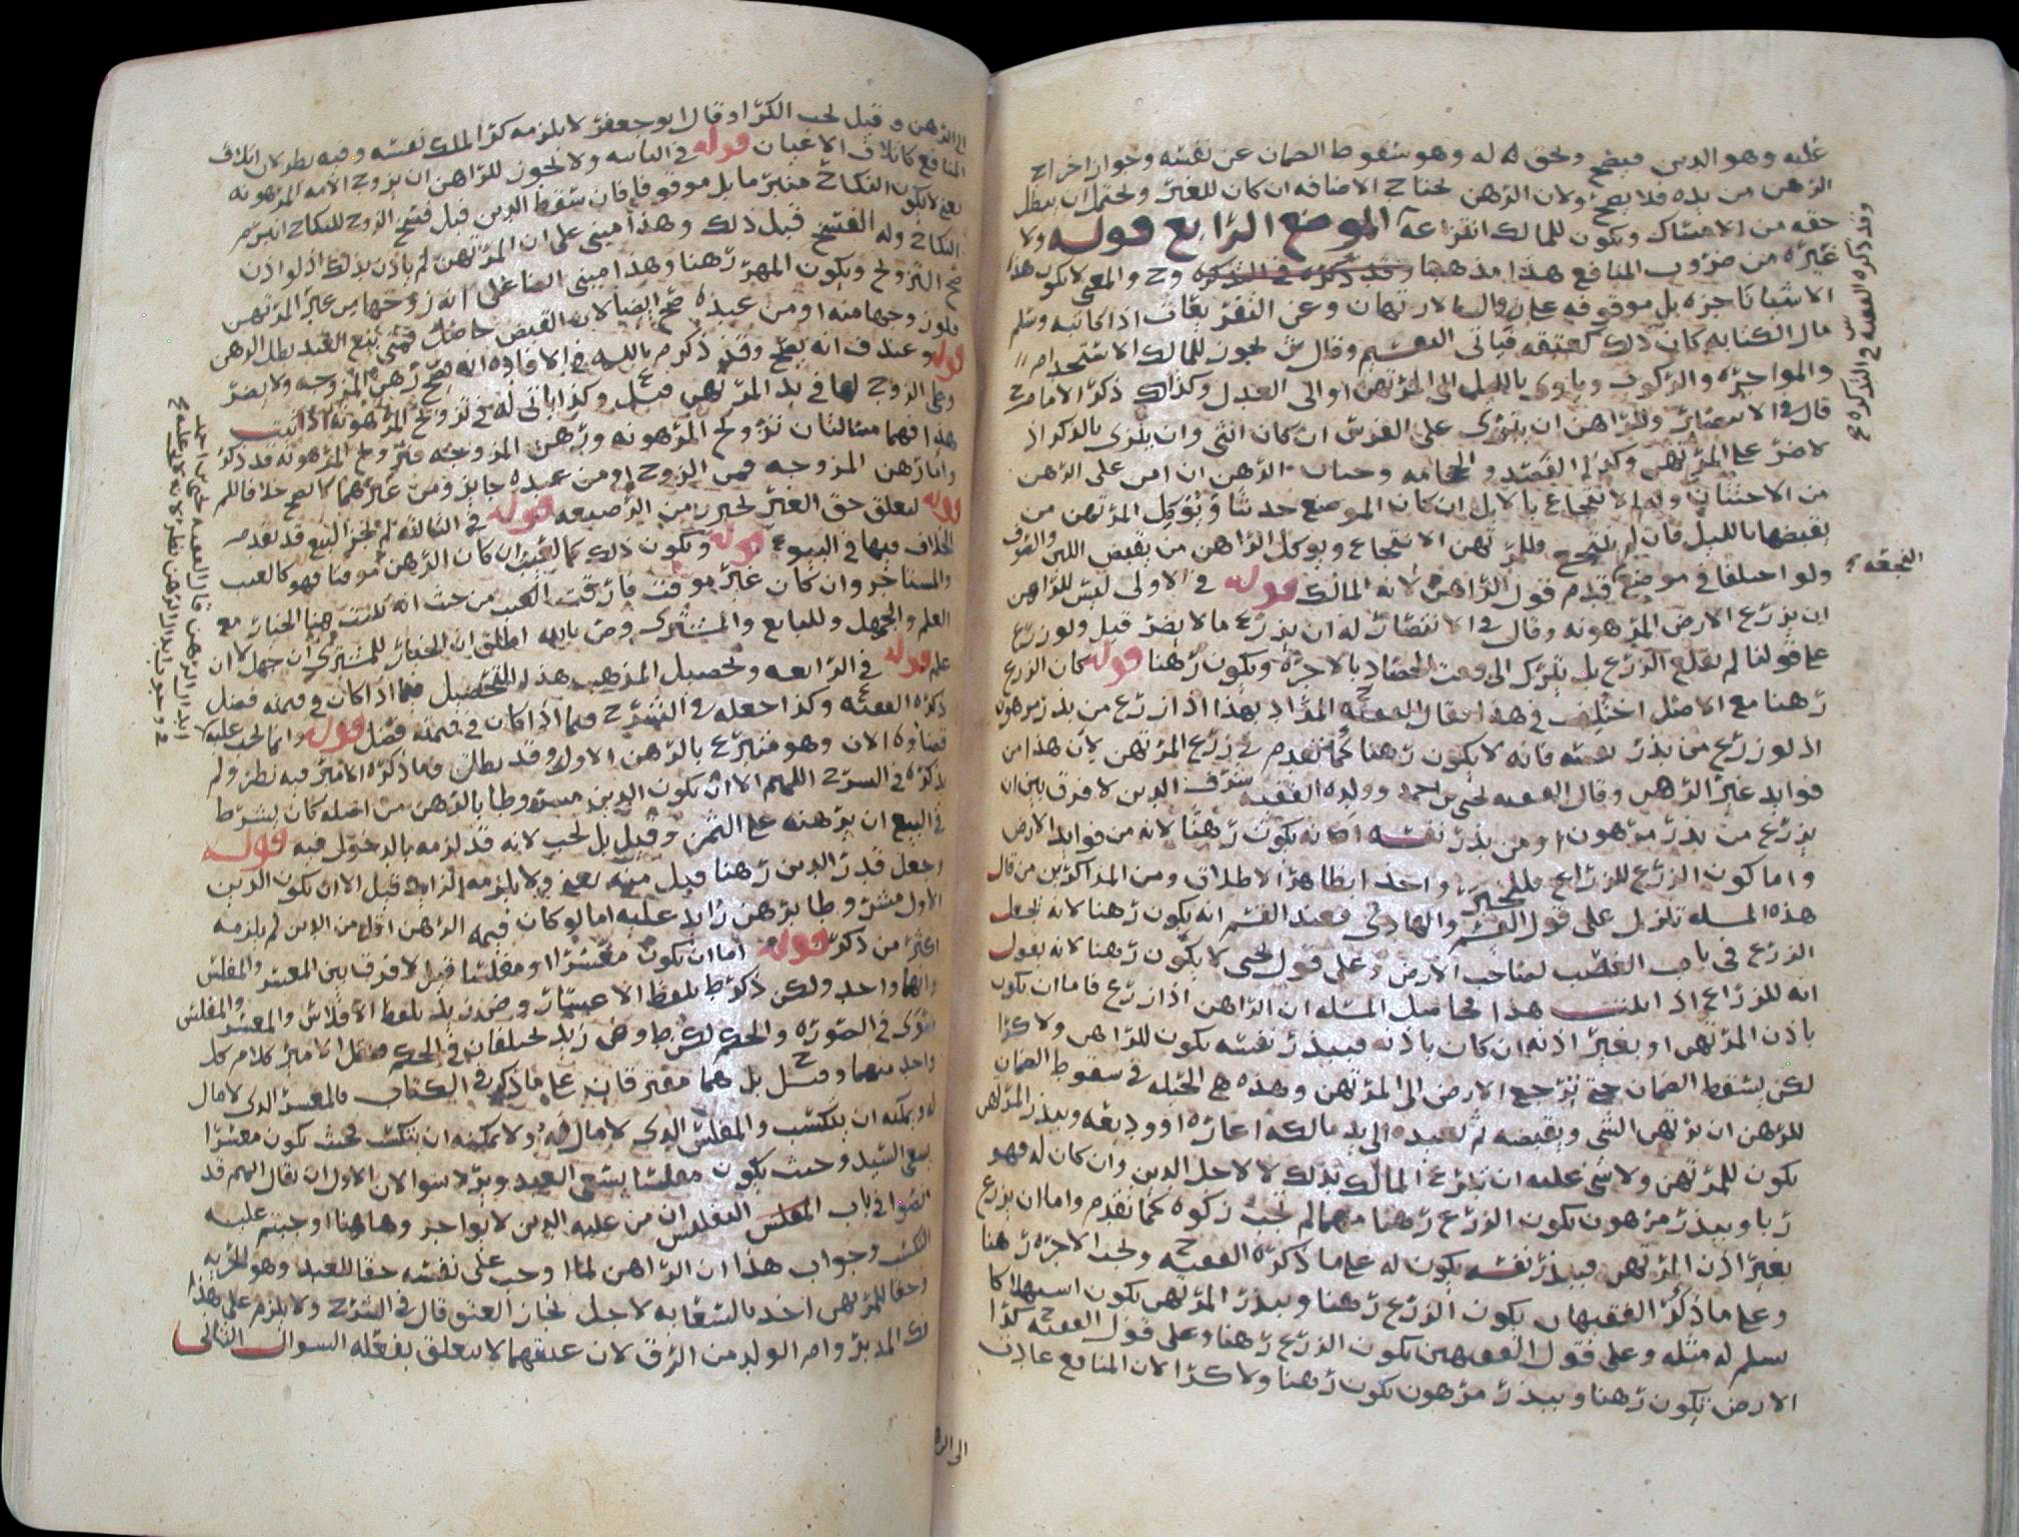 عليه وهو الدين فيصح ولحق له وهو سقوط الضمان عن نفسه وجواز اخراج
الرهن من يده فلا يصح ولان الرهن يحتاج الاضافه ان كان للغير ويحتمل ان يبطل
حقه من الامساك ويكون للمالك انتزاعه الموضع الرابع قوله ولا
غيره من ضروب المنافع هذا مذهبنا وقد ذكره في التذكره وح والمعنى لا يكون هذا
الاشيا ناجزه بل موقوفه وعن اذا كاتبه وسلم
مال الكتابه كان ذلك كعتقه فياتي التقسيم وقال ش يجوز للمالك الاستخدام
والمواجره والركوب وياوي بالليل الى المرتهن او الى العدل وكذلك ذكر الامام ح
قال في الانتصار وللراهن ان ينزي على الفرس ان كان انثى وان ينزى بالذكر اذ
لا ضر على المرتهن وكذا الفصد والحجامه الرهن ان امن على الرهن
وله الانتجاع بالابل ان كان الموضع جدبا ويوكل المرتهن من
يقبضها بالليل فان لم ينتجع فللمرتهن الانتجاع ويوكل الراهن من يقبض اللبن والصوف
ولو اختلفا في موضع قدم قول الراهن لانه المالك قوله في الاولى ليس للراهن
ان يزرع الارض المرهونه وقال في الانتصار له ان يزرع ما لا يضر قيل ولو زرع
على قولنا لم يقلع الزرع بل يترك الى وقت الحصاد بالاجره ويكون رهنا قوله كان الزرع
رهنا مع الاصل اختلف في هذا فقال الفقيه ح المراد بهذا اذا زرع من بذر مرهون
اذ لو زرع من بذر نفسه فانه لا يكون رهنا كما تقدم في زرع المرتهن لان هذا من
فوايد غير الرهن وقال الفقيه يحيى بن احمد وولده الفقيه شرف الدين لا فرق بين ان
يزرع من بذر مرهون او من بذر نفسه انه يكون رهنا لانه من فوايد الارض
واما كون الزرع للزراع فللخبر واخذ بظاهر الاطلاق ومن المذاكرين من قال
هذه المسله تنزل على قول القسم والهادي فعند القسم انه يكون رهنا لانه يجعل
الزرع في باب الغصب لصاحب الارض وعلى قول يحيى لا يكون رهنا لانه يقول
انه للزراع اذا هذا فحاصل المسله ان الراهن اذا زرع فاما ان يكون
باذن المرتهن او بغير اذنه ان كان باذنه فببذر نفسه يكون للراهن ولا كرا
لكن يسقط الضمان حتى ترجع الارض الى المرتهن وهذه هي الحيله في سقوط الضمان
للرهن ان يرتهن الشي ويقبضه ثم يعيده الى يد مالكه اعاره او وديعه وببذر المرتهن
يكون للمرتهن ولا شي عليه ان تبرع المالك بذلك لا لاجل الدين وان كان له فهو
ربا وببذر مرهون يكون الزرع رهنا مهما لم تجب زكوه كما تقدم واما ان يزرع
بغير اذن المرتهن فببذر نفسه يكون له على ما ذكره الفقيه ح ويجب الاجره رهنا
وعلى ما ذكر الفقيهان يكون الزرع رهنا وببذر المرتهن يكون استهلاكا
يسلم له مثله وعلى قول الفقيهين يكون الزرع رهنا وعلى قول الفقيه ح كرا
الارض يكون رهنا وببذر مرهون يكون رهنا ولا كرا لان المنافع عادت
وقد ذكره الفقيه س في التذكره
النجعه
الى الرهن وقيل يجب الكرا وقال ابو جعفر لا يلزمه كرا الملك نفسه وفيه نظر لان اتلاف
المنافع كاتلاف الاعيان قوله في الثانيه ولا يجوز للراهن ان يزوج الامه المرهونه
يعني لا يكون النكاح منبرما بل موقوفا فان سقط الدين قبل فسخ الزوج للنكاح انبرم
النكاح وله الفسخ قبل ذلك وهذا مبني على ان المرتهن لم ياذن بذلك اذ لو اذن
صح التزويج ويكون المهر رهنا وهذا مبني ايضا على انه زوجها من غير المرتهن
فلو زوجها منه او من عبده صح ايضا لان القبض حاصل فمتى بطل الرهن
قوله وعند ف انه يصح وقد ذكر م بالله في الافاده انه يصح رهن المزوجه ولا يضر
وطي الزوج لها في يد المرتهن وكذا ياتي له في تزويج المرهونه اذا ثبت
هذا فهما مسالتان تزويج المرهونه ورهن المزوجه فتزويج المرهونه قد ذكر
واما رهن المزوجه فمن الزوج او من عبده جايز ومن غيرهما لا يصح خلافا للم
قوله لتعلق حق الغير يحترز من قوله في الثالثه لم يجز البيع قد تقدم
الخلاف فيها في البيوع قوله ويكون ذلك كالعيب ان كان الرهن موقتا فهو كالعيب
والمستاجر وان كان غير موقت فارقت العيب من حيث انه يثبت هنا الخيار مع
العلم والجهل وللبايع والمشتري وص بالله اطلق ان الخيار للمشتري ان جهل لا ان
علم قوله في الرابعه وتحصيل المذهب هذا التحصيل فيما اذا كان في قيمته فضل
ذكره الفقيه ع وكذا جعله في الشرح فيما اذا كان في قيمته فضل قوله وانما يجب عليه
قضاؤه الان وهو متبرع بالرهن الاول وقد بطل فما ذكره الامير فيه نظر ولم
يذكره في الشرح اللهم الا ان يكون الدين مشروطا بالرهن من اصله كان يشرط
في البيع ان يرهنه على الثمن وقيل بل يجب لانه قد لزمه بالدخول فيه قوله
وجعل قدر الدين رهنا قيل منه يعني ولا يلزمه الزايد قيل الا ان يكون الدين
الاول مشروطا برهن زايد عليه اما لو كان قيمه الرهن اقل من الدين لم يلزمه
اكثر من ذكر قوله اما ان يكون معسرا او مفلسا قيل لا فرق بين المعسر والمفلس
وانهما واحد ولكن ذكر ط بلفظ الاعسار وض زيد بلفظ الافلاس والمعسر والمفلس
سوى في الصوره والحكم لكن ط وض زيد يختلفان في الحكم فنقل الامير كلام كل
واحد منهما وقيل ح بل هما مفترقان على ما ذكر في الكتاب فالمعسر الذي لا مال
له ويمكنه ان يتكسب والمفلس الذي لا مال له ولا يمكنه ان يتكسب فحيث يكون معسرا
يسعى السيد وحيث يكون مفلسا يسعى العبد ويرد سوالان الاول ان يقال انهم قد
نصوا في باب التفليس ان من عليه الدين لا يواجر وهاهنا اوجبتم عليه
التكسب وجواب هذا ان الراهن لما اوجب على نفسه حقا للعبد وهو الحريه
وحقا للمرتهن اخذ بالسعايه لاجل نجاز العتق قال في الشرح ولا يلزم على هذا
فك المدبر وام الولد من الرق لان عتقهما لا يتعلق بفعله السوال الثاني
الى الره